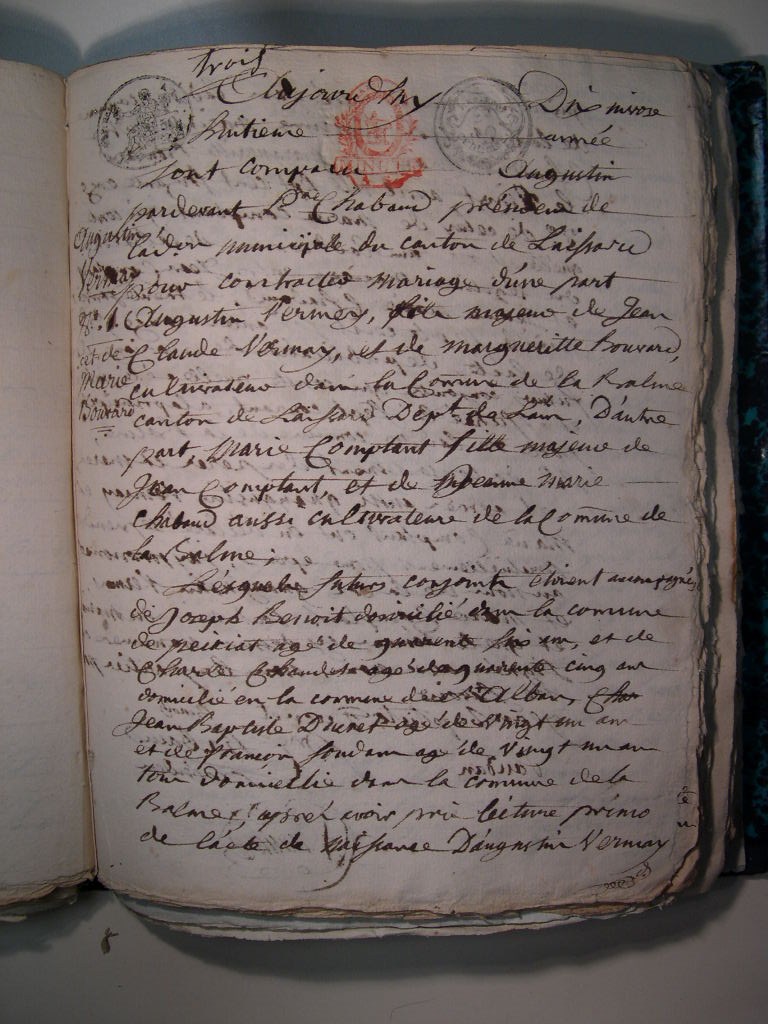 trois
Aujourd'huy Dix nivose
huitieme année
sont comparu Augustin
pardevant Chabaud président de
l'adon municipale du canton de Laissard
pour contracter mariage d'une part
Augustin Vermay, fils majeur de Jean
Claude Vermay, et de margueritte Bouvard,
cultivateur dans la Commune de la Balme
canton de Laissard Dept de Lain, D'autre
part, Marie Comptant fille majeure de
Jean Comptant et de marie
Chabaud aussi cultivateure de la Commune de
la Balme;
Lesquels futurs conjoints étoient accompagnés
de Joseph Benoit domicilié dans la commune
de age de quarente six ans, et de
Charle age de quarente cinq ans
domicilié en la commune de st Alban,
Jean Baptiste Ducret agé de vingt un ans
et de age de vingt un ans
tous domicillie dans la commune de la
Balme, apres avoir pris lecture primo
de l'acte de naissance D'augustin Vermay
Augustin
Vermay
et de
Marie
Bouvard